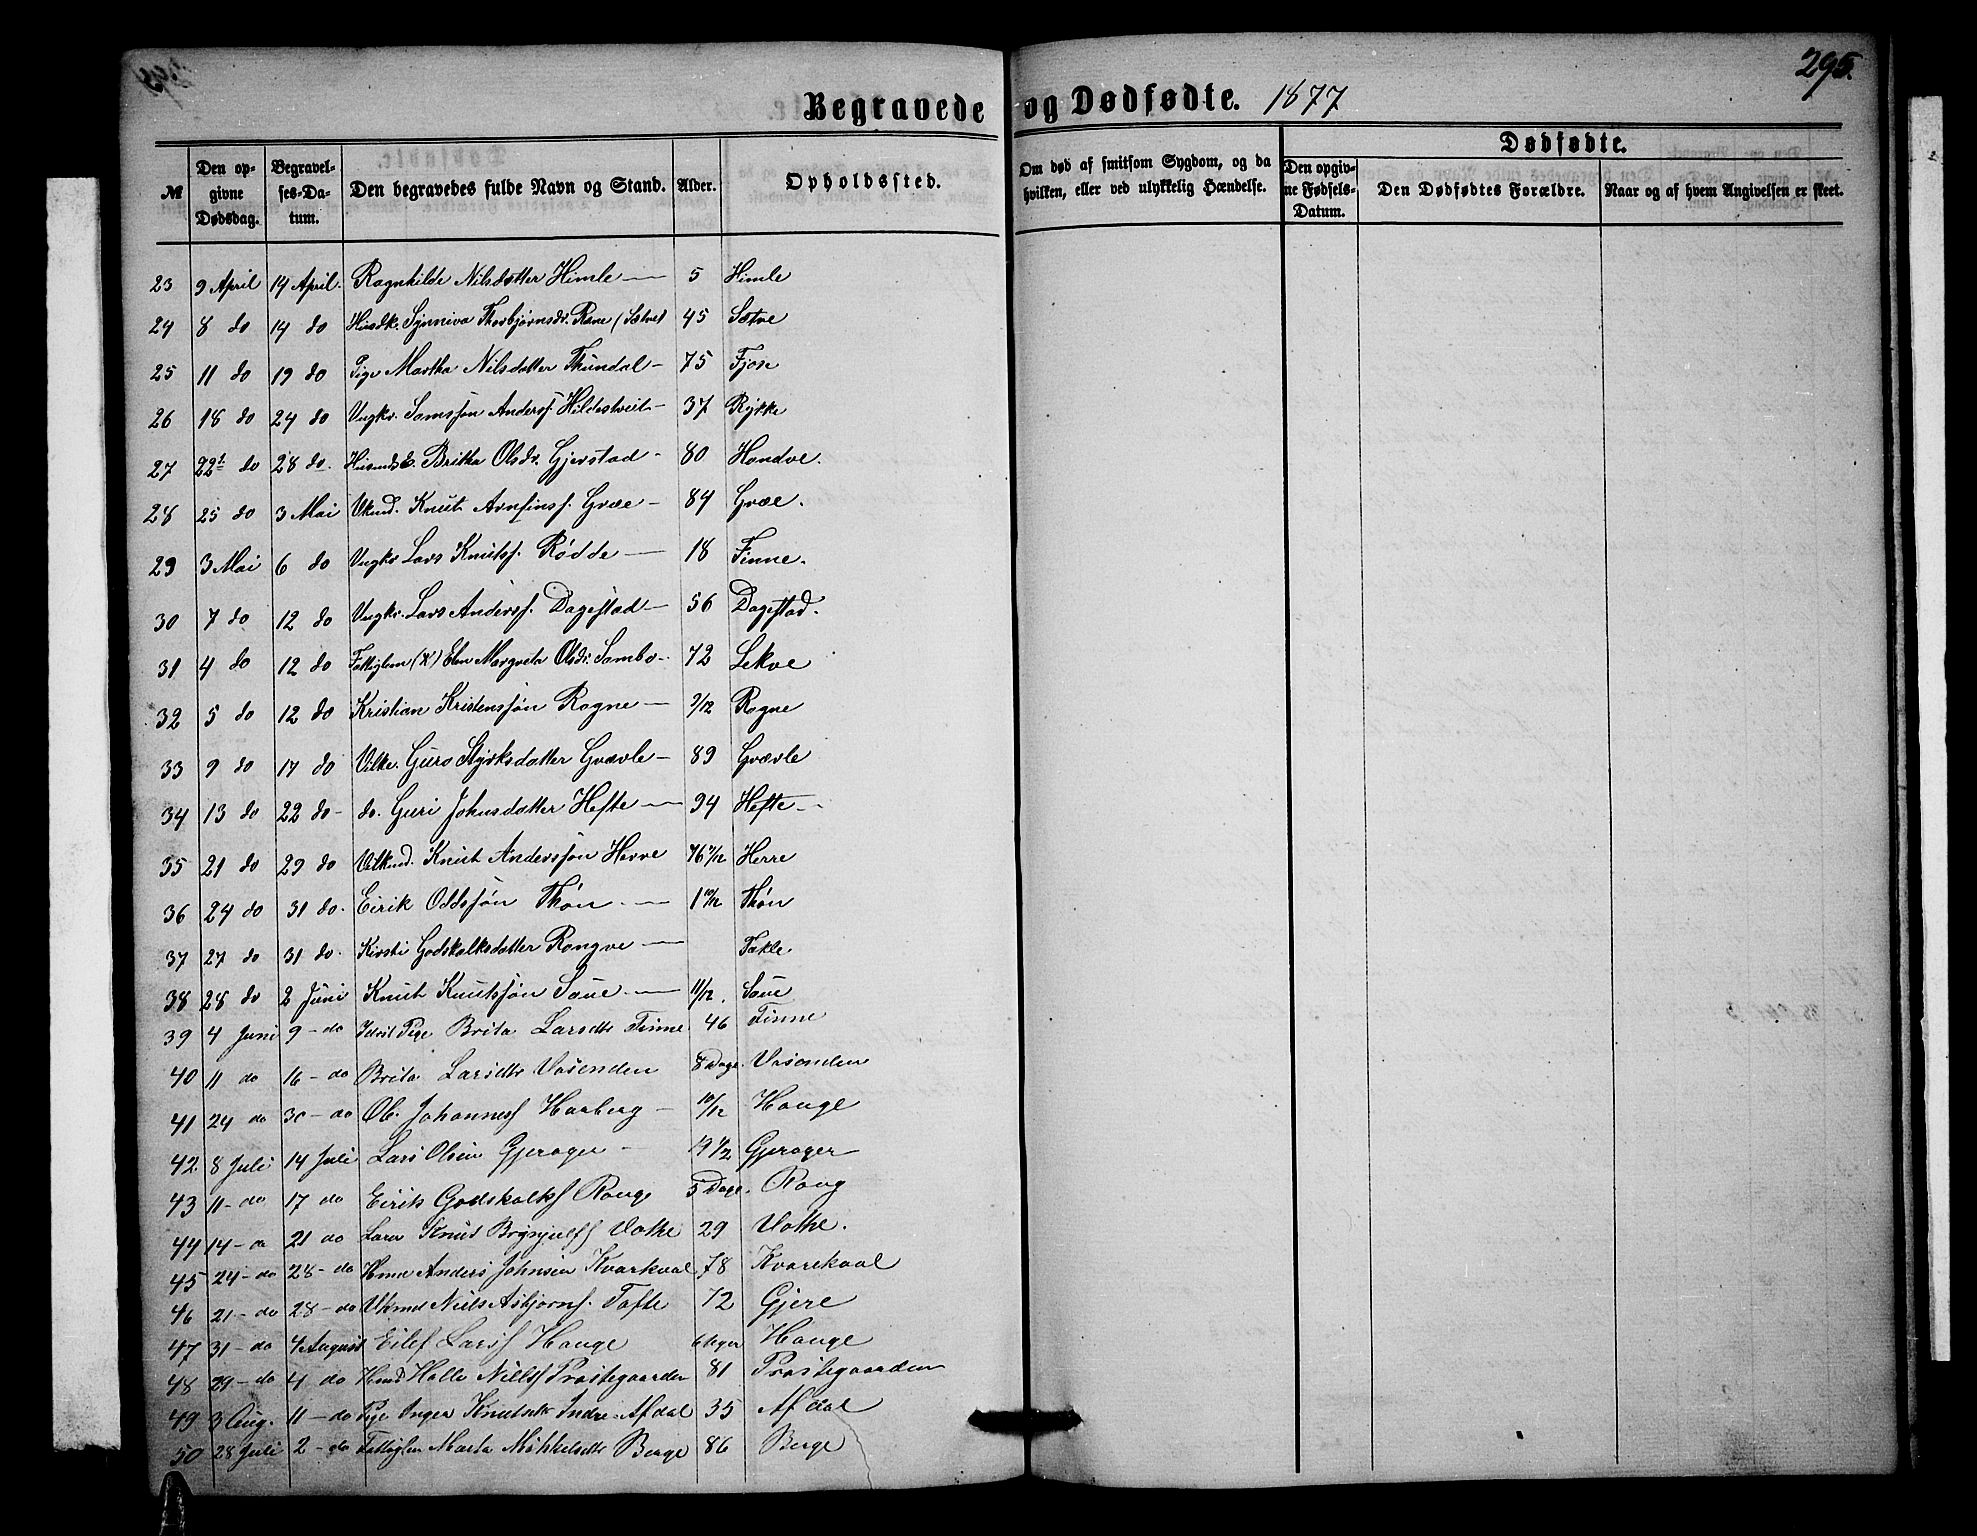 295.
Begravede og Dødfødte. 1877
Dødfødte.
№ Den opgivne Dødsdag. Begravelses-Datum. Den begravedes fulde Navn og Stand. Alder. Opholdssted. Om død af smitsom Sygdom, og da hvilken, eller ved ulykkelig Hændelse. Den opgivne Fødsels-Datum. Den Dødfødtes Forældre. Naar og af hvem Angivelsen er skeet.
23 9 April 14 April. Ragnhilde Nilsdatter Himle — 5 Himle
24 8 do 14 do Husdk. Synniva Thorbjørnsdr. Rene (Sætve) 45 Sætve
25 11 do 19 do Pige Martha Nilsdatter Thundal - 75 Fjose
26 18 do 24 do Ungkr. Samsson Anderss. Hildestveit - 37 Rykke
27 22 do 28 do. Britha Olsdr. Gjerstad - 80 Hondve.
28 25 do 3 Mai Knut Arnfinss. Græe - 84 Græe.
29 3 Mai 6 do Ungkr Lars Knutss. Rødde — 18 Finne.
30 7 do 12 do Ungkr. Lars Anderss. Dagestad — 56 Dagestad.
31 4 do 12 do Fattiglem (X) Elen Margreta Olsdr. Sambo - 72 Lekve
32 5 do 12 do Kristian Kristensson Rogne — 9/12 Rogne
33 9 do 17 do Guro Styrksdatter Gravle — 89 Gravle
34 13 do 22 do - do. Guri Johnsdatter Hefte — 94 Hefte —
35 21 do 29 do Knut Andersson Herre 76 Herre
36 24 do 31 do. Eirik Oddssøn Thøn. — 1 10/12 Thøn
37 27 do 31 do. Kirsti Godskalksdatter Rongve — Takle
38 28 do 2 Juni Knut Knutssøn Saue. — 11/12. Saue
39 4 Juni 9 - do Pige Brita Larsdtr Finne 46 Finne
40 11 do 16 - do Brita Larsdtr Vasenden 8 Dage. Vasenden
41 24 do 30 - do Ole Johanness Haaberg - 10/12 Hauge
42 8 Juli 14 Juli Lars Olsen Gjerager - 19 1/2 Gjerager
43 11 - do 17 do Eirik Godskalks Ronge 5 Dage. Rong
44 14 - do 21 do Knut Brynjulfs Vathe 29 Vathe.
45 24 - do 28 - do Hmd Anders Johnsen Kvarkval 78 Kvarekval
46 21 - do 28 - do Niels Asbjørns. Tofte 72 Gjere
47 31 - do 4 August Eilef Larss Hauge Hauge
48 29 - do 4 do Hmd Halle Nielss Præstegaarden 81 Præstegaarden
49 3 Aug. 11 - do Pige Inger Knutsdtr Indre-Afdal 35 Afdal
50 28 Juli 2 - do Fattiglem Marta Mikkelsdtr Berge 86 Berge